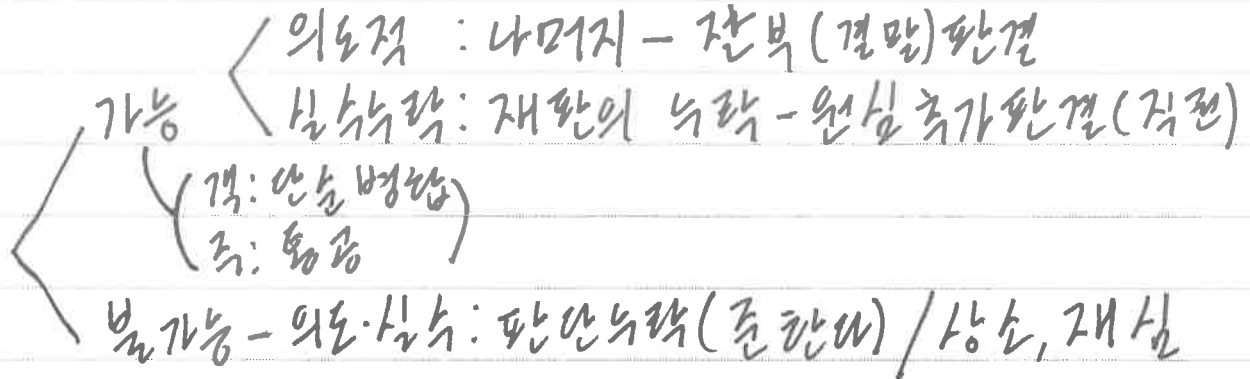 의도적 : 나머지 - 잔부(결말)판결
가능
실수누락: 재판의 누락 - 원심 추가판결(직권)
(객: 단순병합
주: 통공)
불가능 - 의도·실수: 판단누락(준한다) / 상소, 재심